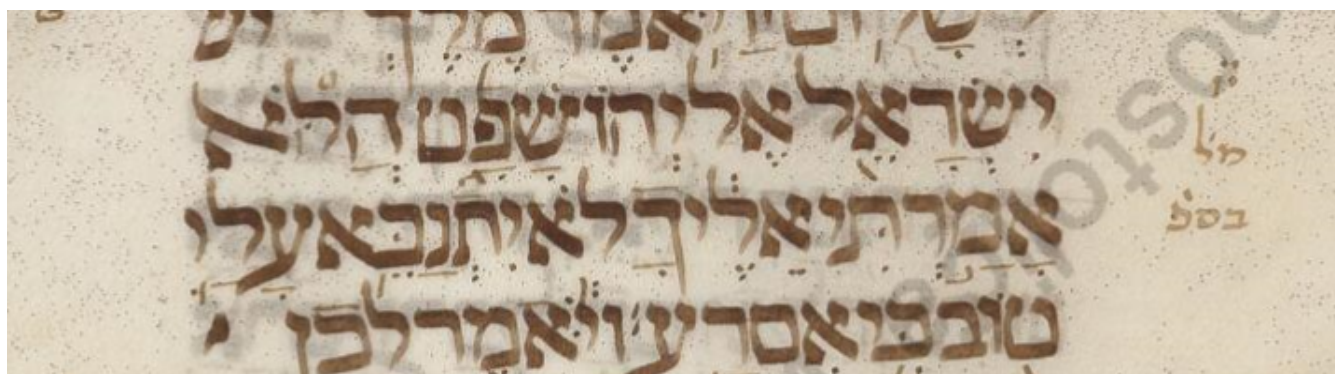 בְּשָׁלוֹם וַיֹּאמֶר מֶלֶךְ יש
יִשְׂרָאֵל אֶל יְהוֹשָׁפָט הֲלֹא
אָמַרְתִּי אֵלֶיךָ לֹא יִתְנַבֵּא עָלַי
טוֹב כִּי אִם רָע וַיֹּאמֶר לָכֵן
מל
בספ